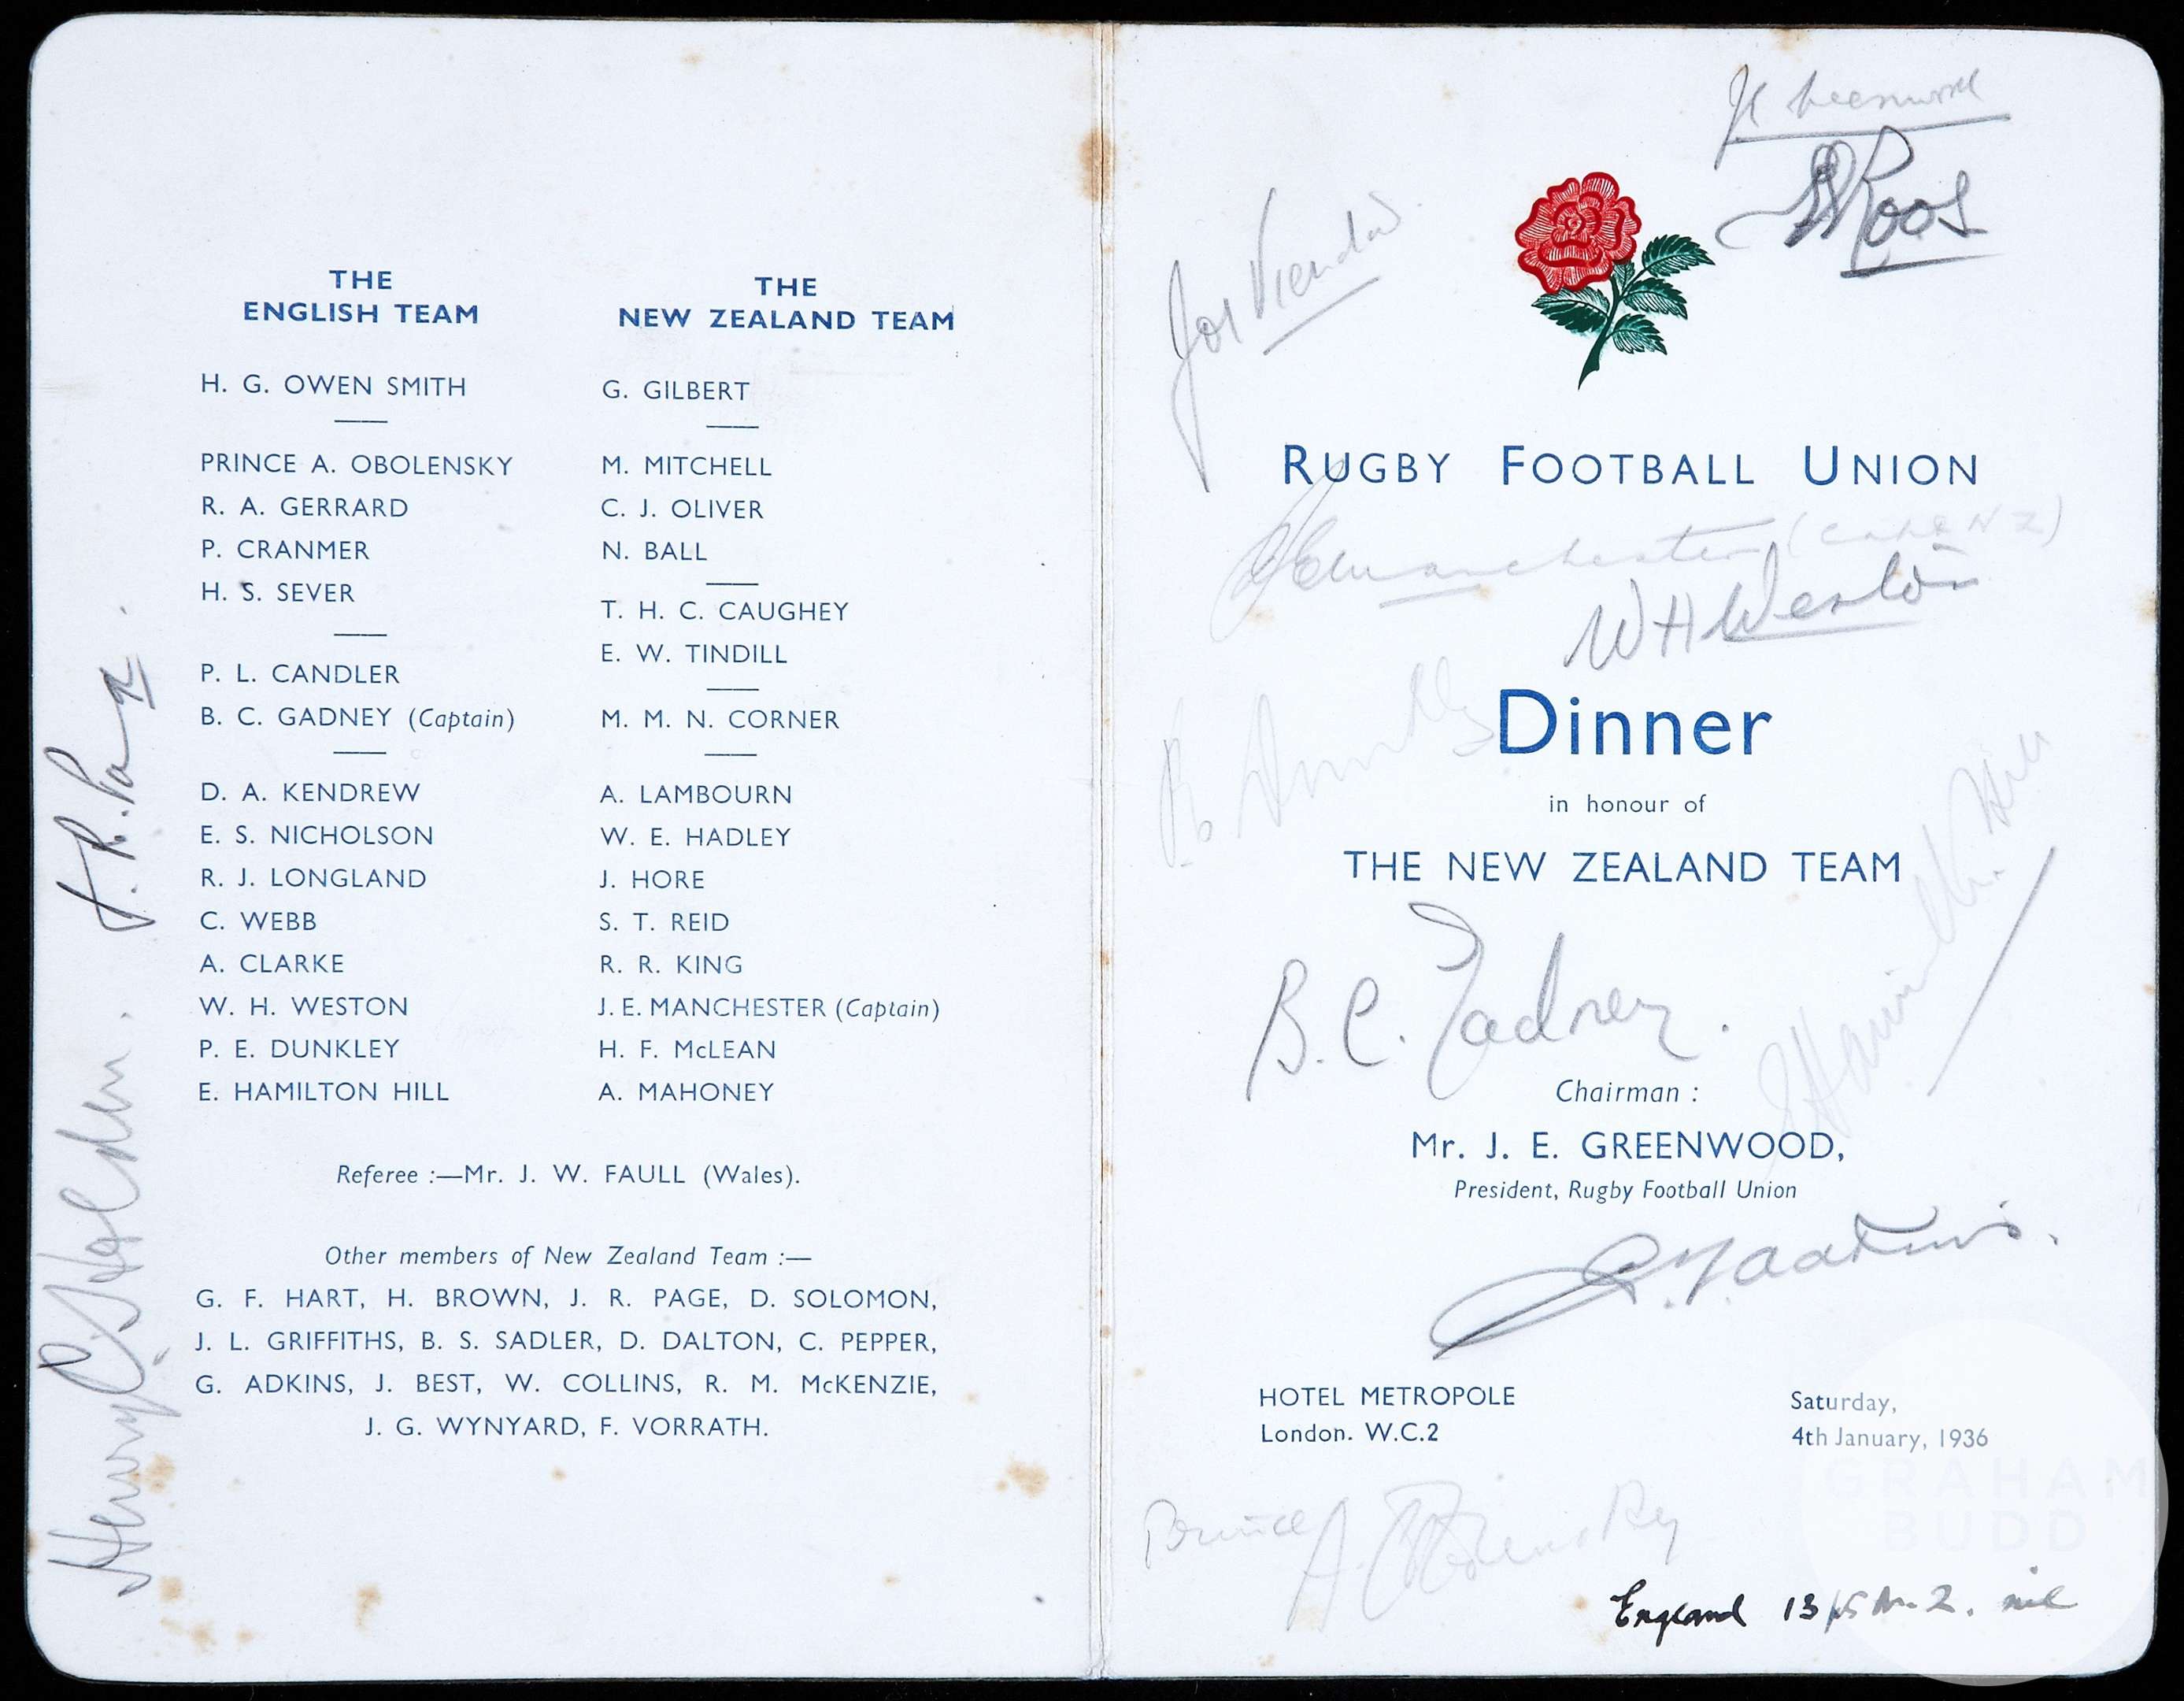 THE
ENGLISH TEAM
H. G. OWEN SMITH
PRINCE A. OBOLENSKY
R. A. GERRARD
P. CRANMER
H. S. SEVER
P. L. CANDLER
B. C. GADNEY (Captain)
D. A. KENDREW
E. S. NICHOLSON
R. J. LONGLAND
C. WEBB
A. CLARKE
W. H. WESTON
P. E. DUNKLEY
E. HAMILTON HILL
THE
NEW ZEALAND TEAM
G. GILBERT
M. MITCHELL
C. J. OLIVER
N. BALL
T. H. C. CAUGHEY
E. W. TINDILL
M. M. N. CORNER
A. LAMBOURN
W. E. HADLEY
J. HORE
S. T. REID
R. R. KING
J. E. MANCHESTER (Captain)
H. F. McLEAN
A. MAHONEY
Referee :—Mr. J. W. FAULL (Wales).
Other members of New Zealand Team :—
G. F. HART, H. BROWN, J. R. PAGE, D. SOLOMON,
J. L. GRIFFITHS, B. S. SADLER, D. DALTON, C. PEPPER,
G. ADKINS, J. BEST, W. COLLINS, R. M. McKENZIE,
J. G. WYNYARD, F. VORRATH.
J. R. Page
Henry C.
Roos
RUGBY FOOTBALL UNION
J E Manchester (Capt NZ)
W H Weston
Dinner
in honour of
THE NEW ZEALAND TEAM
B. C. Gadney.
Hamilton Hill
Chairman :
Mr. J. E. GREENWOOD,
President, Rugby Football Union
G. A. Adkins.
HOTEL METROPOLE
London. W.C.2
Saturday,
4th January, 1936
Prince A. Obolensky
England 13 N. Z. nil
GRAHAM
BUDD